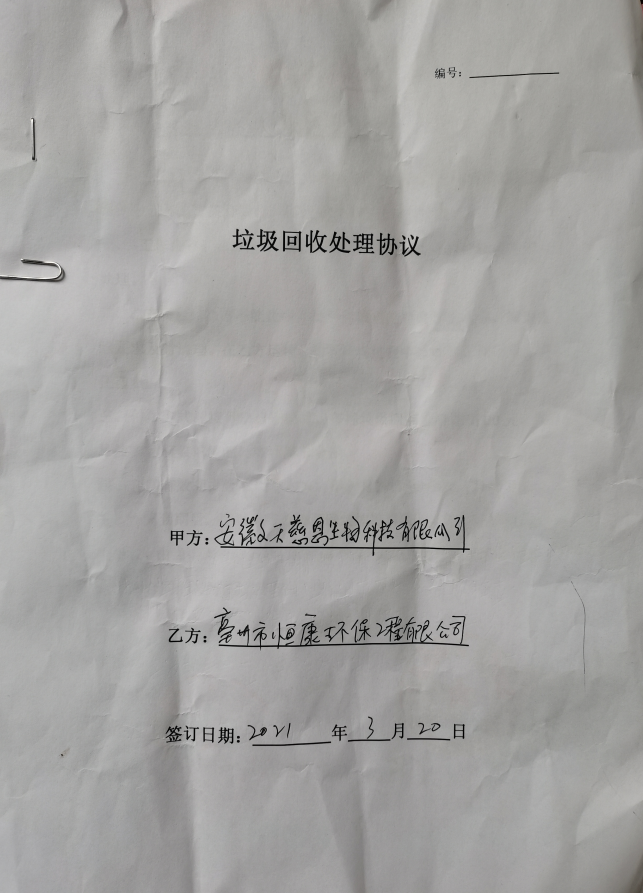 编号：
垃圾回收处理协议
甲方：安徽天慈恩生物科技有限公司
乙方：亳州市恒康环保工程有限公司
签订日期：2021年3月20日